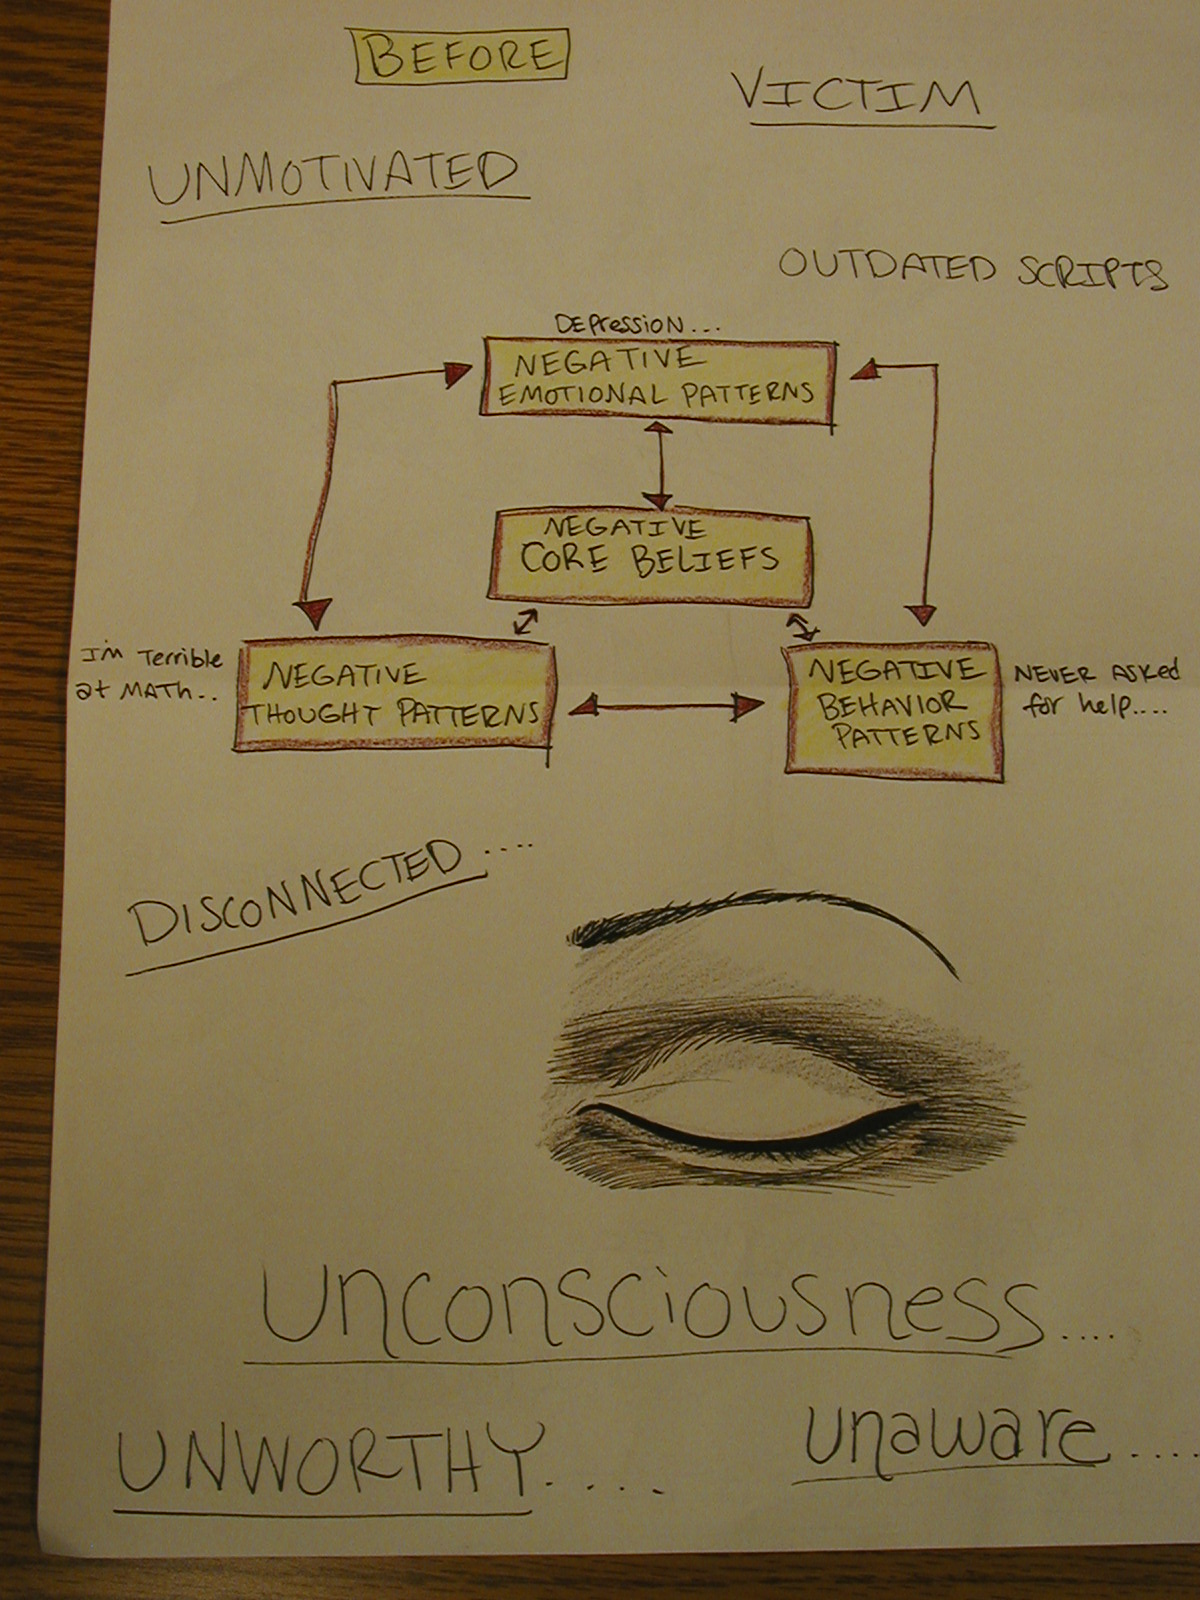 BEFORE
VICTIM
UNMOTIVATED
OUTDATED SCRIPTS
DEPRESSION...
NEGATIVE
EMOTIONAL PATTERNS
NEGATIVE
CORE BELIEFS
I'm Terrible
at MATh..
NEGATIVE
THOUGHT PATTERNS
NEGATIVE
BEHAVIOR
PATTERNS
NEVER ASKed
for help....
DISCONNECTED....
Unconsciousness....
UNWORTHY.....
unaware....